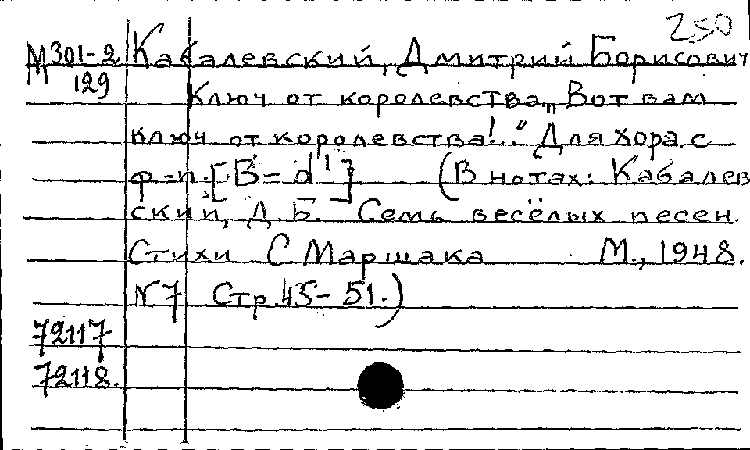 250
М 301-2 Кабалевский, Дмитрий Борисович
129 Ключ от королевства „Вот вам
ключ от королевства!.." Для хора с
ф-п. [B = d¹] (В нотах: Кабалев
ский, Д. Б. Семь весёлых песен.
Стихи С Маршака М., 1948.
N7 Стр. 45-51.)
72117
72118.